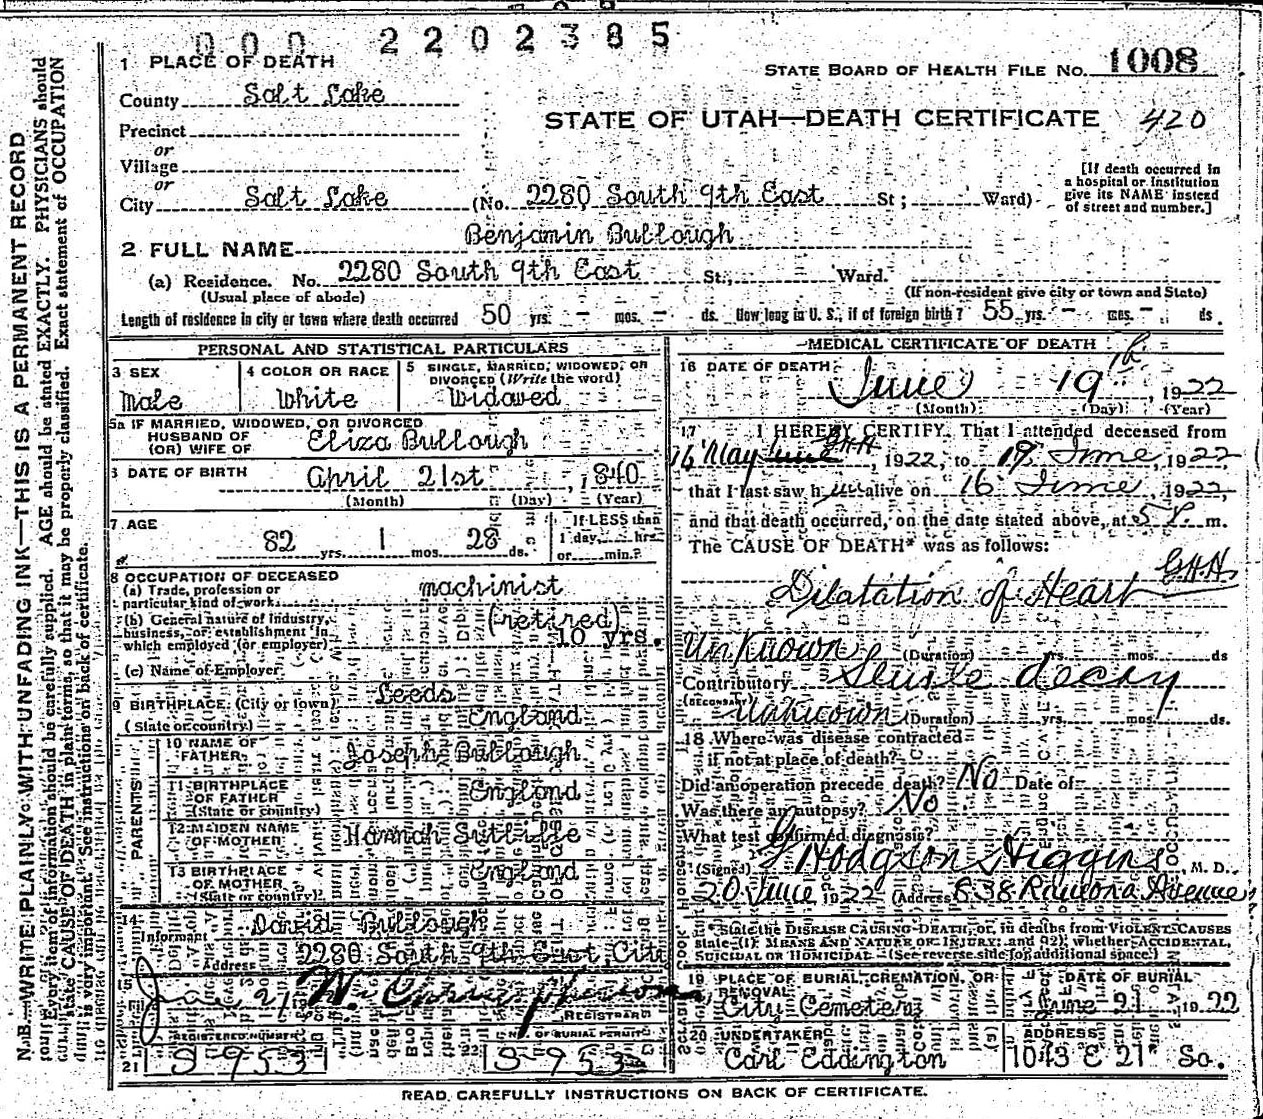 000 2202385
1 PLACE OF DEATH
STATE BOARD OF HEALTH FILE NO. 1008
County Salt Lake
STATE OF UTAH—DEATH CERTIFICATE 420
Precinct
or
Village
or
City Salt Lake (No. 2280 South 9th East St; Ward)
[If death occurred in
a hospital or institution
give its NAME instead
of street and number.]
2 FULL NAME Benjamin Bullough
(a) Residence. No. 2280 South 9th East St., Ward.
(Usual place of abode) (If non-resident give city or town and State)
Length of residence in city or town where death occurred 50 yrs. - mos. - ds. How long in U. S., if of foreign birth? 55 yrs. - mos. - ds.
PERSONAL AND STATISTICAL PARTICULARS
3 SEX
Male
4 COLOR OR RACE
White
5 SINGLE, MARRIED, WIDOWED, OR
DIVORCED (Write the word)
Widowed
5a IF MARRIED, WIDOWED, OR DIVORCED
HUSBAND OF
(OR) WIFE OF Eliza Bullough
6 DATE OF BIRTH April 21st, 1840
(Month) (Day) (Year)
7 AGE
82 yrs. 1 mos. 28 ds.
If LESS than
1 day, hrs.
or min.?
8 OCCUPATION OF DECEASED
(a) Trade, profession or
particular kind of work machinist
(b) General nature of Industry,
business, or establishment in
which employed (or employer) (retired) 10 yrs.
(c) Name of Employer
9 BIRTHPLACE (City or town) Leeds
(State or country) England
PARENTS
10 NAME OF
FATHER Joseph Bullough
11 BIRTHPLACE
OF FATHER England
(State or country)
12 MAIDEN NAME
OF MOTHER Hannah Sutliffe
13 BIRTHPLACE
OF MOTHER England
(State or country)
14
Informant David Bullough
Address 2280 South 9th East City
15
June 21
REGISTRAR
REGISTERED NUMBER
21 S-953
NO. OF BURIAL PERMIT
22 S-953
MEDICAL CERTIFICATE OF DEATH
16 DATE OF DEATH June 19th, 1922
(Month) (Day) (Year)
17 I HEREBY CERTIFY, That I attended deceased from
16 May June GHH, 1922, to 19 June, 1922,
that I last saw him alive on 16 June, 1922,
and that death occurred, on the date stated above, at 5 P. m.
The CAUSE OF DEATH* was as follows:
Dilatation of Heart G.H.H.
Unknown (Duration) yrs. mos. ds
Contributory Senile decay
(SECONDARY)
Unknown (Duration) yrs. mos. ds.
18 Where was disease contracted
if not at place of death?
Did an operation precede death? No Date of
Was there an autopsy? No
What test confirmed diagnosis?
(Signed) G Hodgson Higgins, M. D.
20 June 1922 (Address 838 Ramona Avenue
*State the DISEASE CAUSING DEATH, or, in deaths from VIOLENT CAUSES
state (1) MEANS AND NATURE OF INJURY; and (2), whether ACCIDENTAL,
SUICIDAL OR HOMICIDAL (See reverse side for additional space.)
19 PLACE OF BURIAL, CREMATION, OR
REMOVAL
City Cemetery
DATE OF BURIAL
June 21 1922
20 UNDERTAKER
Carl Eddington
ADDRESS
1043 E 21 So.
READ CAREFULLY INSTRUCTIONS ON BACK OF CERTIFICATE.
N. B.—WRITE PLAINLY WITH UNFADING INK—THIS IS A PERMANENT RECORD
Every item of information should be carefully supplied. AGE should be stated EXACTLY. PHYSICIANS should
state CAUSE OF DEATH in plain terms, so that it may be properly classified. Exact statement of OCCUPATION
is very important. See instructions on back of certificate.